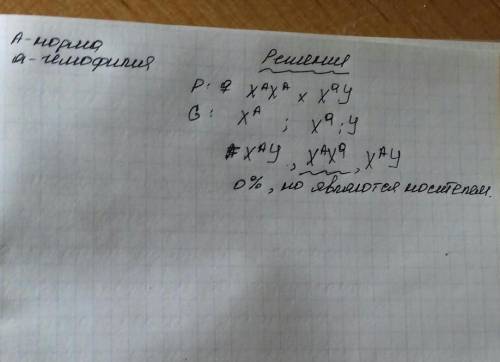 А - норма
а - гемофилия
Решение
P: ♀ XᴬXᴬ x XᵃY
G: Xᴬ ; Xᵃ ; Y
XᴬY , XᴬXᵃ , XᴬY
0%, но являются носителем.